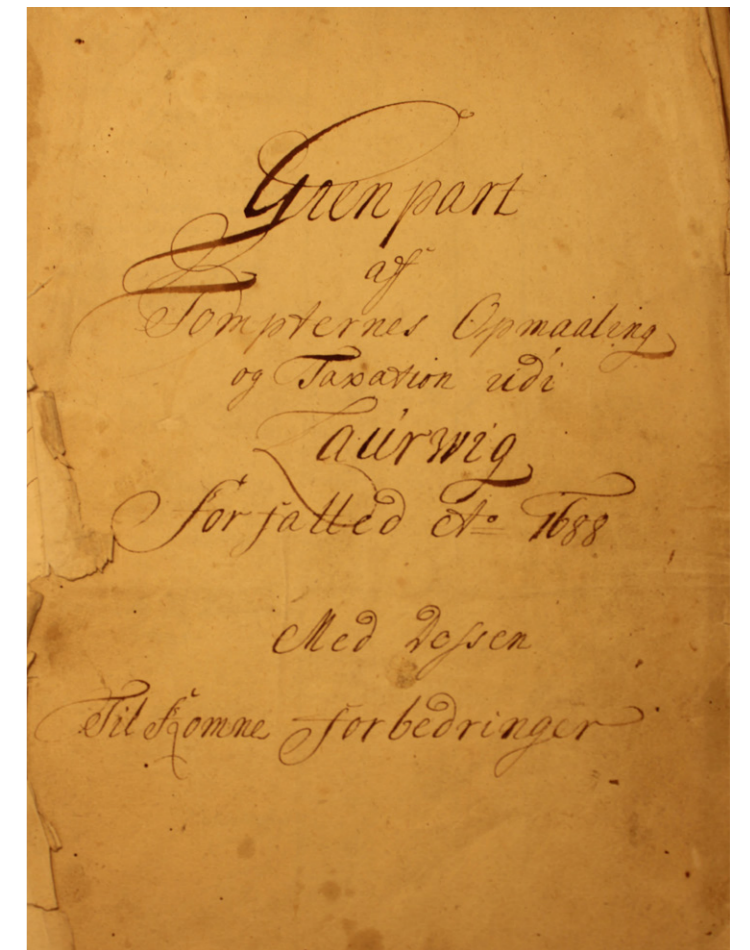 Gienpart
af
Tompternes Opmaaling
og Taxation udi
Laurwig
forfatted Ao 1688
Med Dessen
Tilkomne forbedringer